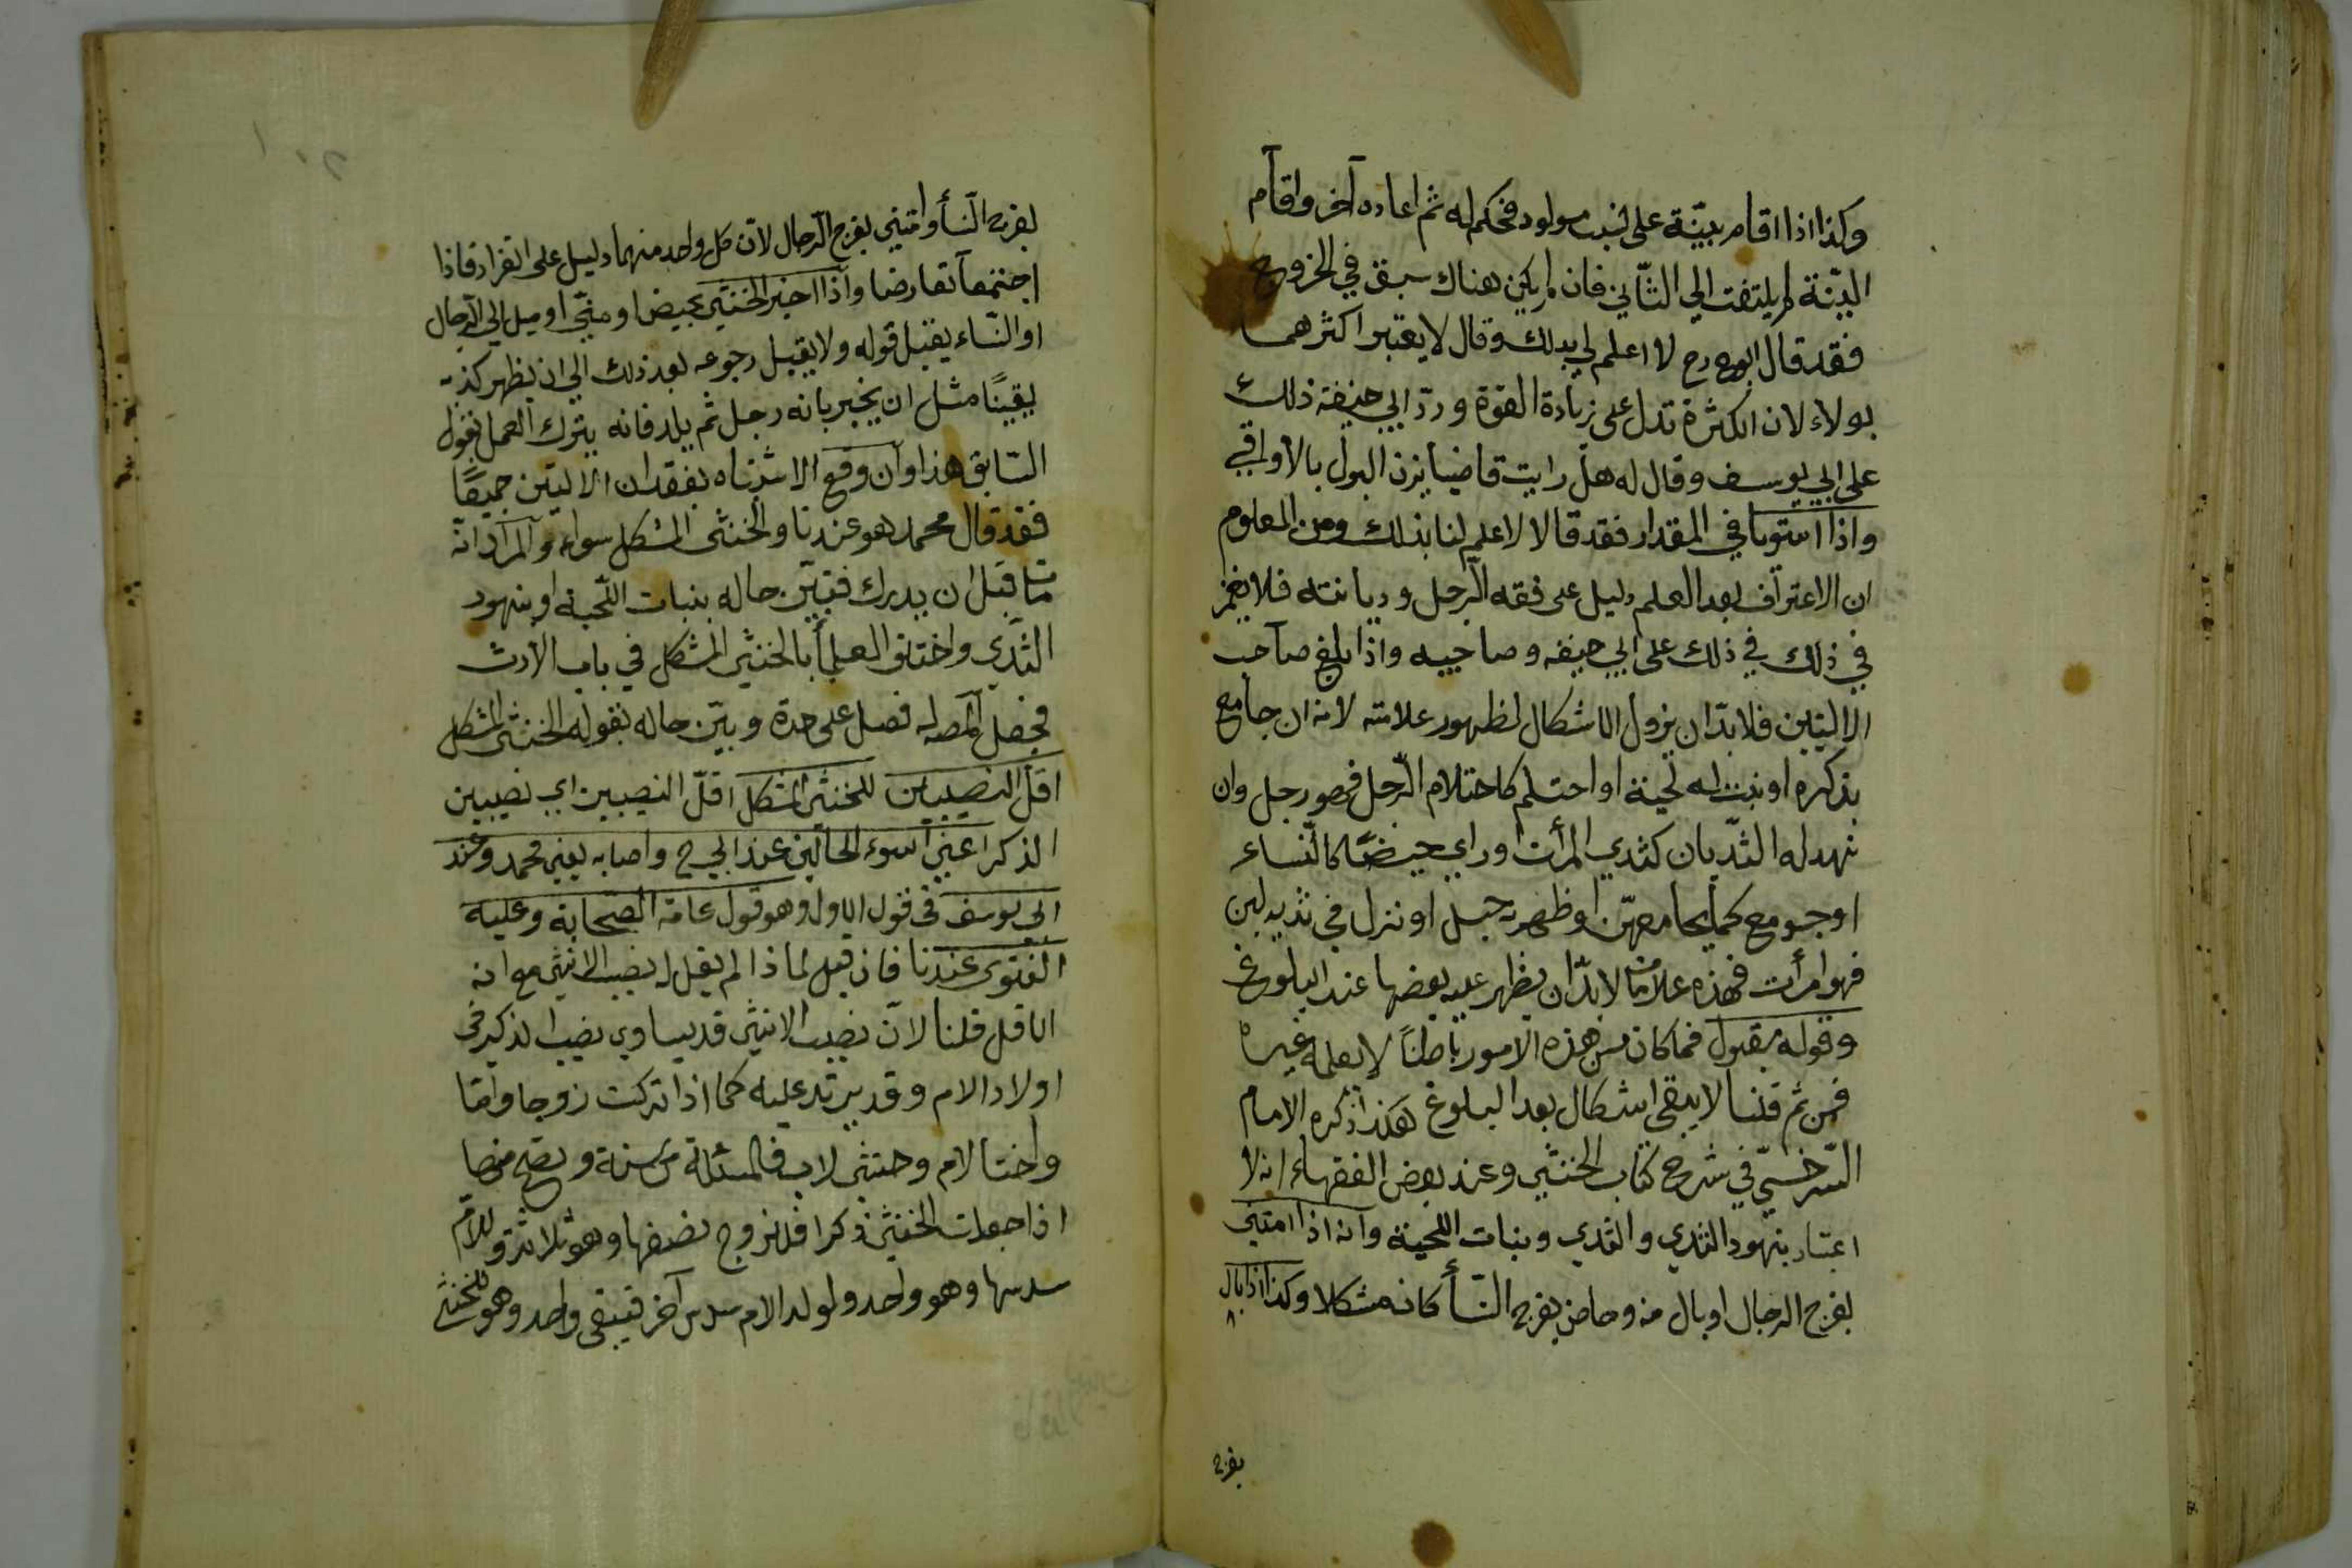 وكذا اذا اقام بينة على نسب مولود فحكم له ثم اعاده آخر واقام
البينة لم يلتفت الي الثاني فان لم يكن هناك سبق في الخروج
فقد قال ابوح رح لا اعلم لي بذلك وقال لا يعتبر اكثرهما
بولاء لان الكثرة تدل على زيادة القوة وردّ ابي حنيفة ذلك
على ابي يوسف وقال له هل رايت قاضيا يزن البول بالأواقي
واذا استويا في المقدار فقد قالا لا علم لنا بذلك ومن المعلوم
ان الاعتراف بعد العلم دليل على فقه الرجل وديانته فلا يغمز
في ذلك في ذلك على ابي حنيفه وصاحبيه واذا بلغ صاحب
الاليتين فلا بدّ ان يزول الاشكال لظهور علامته لانه ان جامع
بذكره او نبت له لحية او احتلم كاحتلام الرجل فهو رجل وان
نهد له الثديان كثدي المرأت او راي حيضًا كالنساء
او جومع كما يجامعهن او ظهر به حبل او نزل في ثديه لبن
فهو امرأت فهذه علامات لا بدّ ان يظهر عليه بعضها عند البلوغ
وقوله مقبول فما كان من هذه الامور باطنًا لا يعلمه غيره
فمن ثم قلنا لا يبقى اشكال بعد البلوغ هكذا ذكره الامام
السّرخسيّ في شرح كتاب الخنثي وعند بعض الفقهاء انه لا
اعتبار بنهود الثدي والثدي ونبات اللحية وانه اذا امتني
بفرج الرجال او بال منه وحاض بفرج النسأ كانه مشكلا وكذا اذا بال
بفرج
بفرج النسأ وامتني بفرج الرجال لانّ كل واحد منهما دليل على انفراد فاذا
اجتمعا تعارضا واذا اخبر الخنثي بحيض او منيّ او ميل الي الرجال
او النساء يقبل قوله ولا يقبل رجوعه بعد ذلك الي ان يظهر كذبه
يقينًا مثل ان يخبر بانه رجل ثم يلد فانه يترك العمل بقول
السّابق هذا وان وقع الاشتباه بفقدان الاليتين جميعًا
فقد قال محمد هو عندنا والخنثى المشكل سواء والمراد انه
مات قبل ان يدرك فتبين حاله بنبات اللحية او بنهود
الثدي واختلف العلمأ بالخنثي المشكل في باب الارث
فجعل المص له فصل على حدة وبيّن حاله بقوله الخنثى المشكل
اقل النصيبين للخنثى المشكل اقلّ النصيبين اي نصيبين
الذكر اعني اسوء الحالين عند ابي ح واصابه يعني محمد وعند
ابي يوسف في قول الاول وهو قول عامة الصحابة وعليه
الفتوى عندنا فان قيل لماذا لم يقل له نصيب الانثي مع انه
الاقل قلنا لانّ نصيب الانثى قد يساوي نصيب الذكر في
اولاد الام وقد يزيد عليه كما اذا تركت زوجا واما
واختا لام وخنثى لاب فالمسئلة من ستة وتصح منها
اذا جعلت الخنثى ذكرا فللزوج نصفها وهو ثلاثة وللام
سدسها وهو واحد ولولد الام سدس آخر فيبقى واحد وهو للخنثى